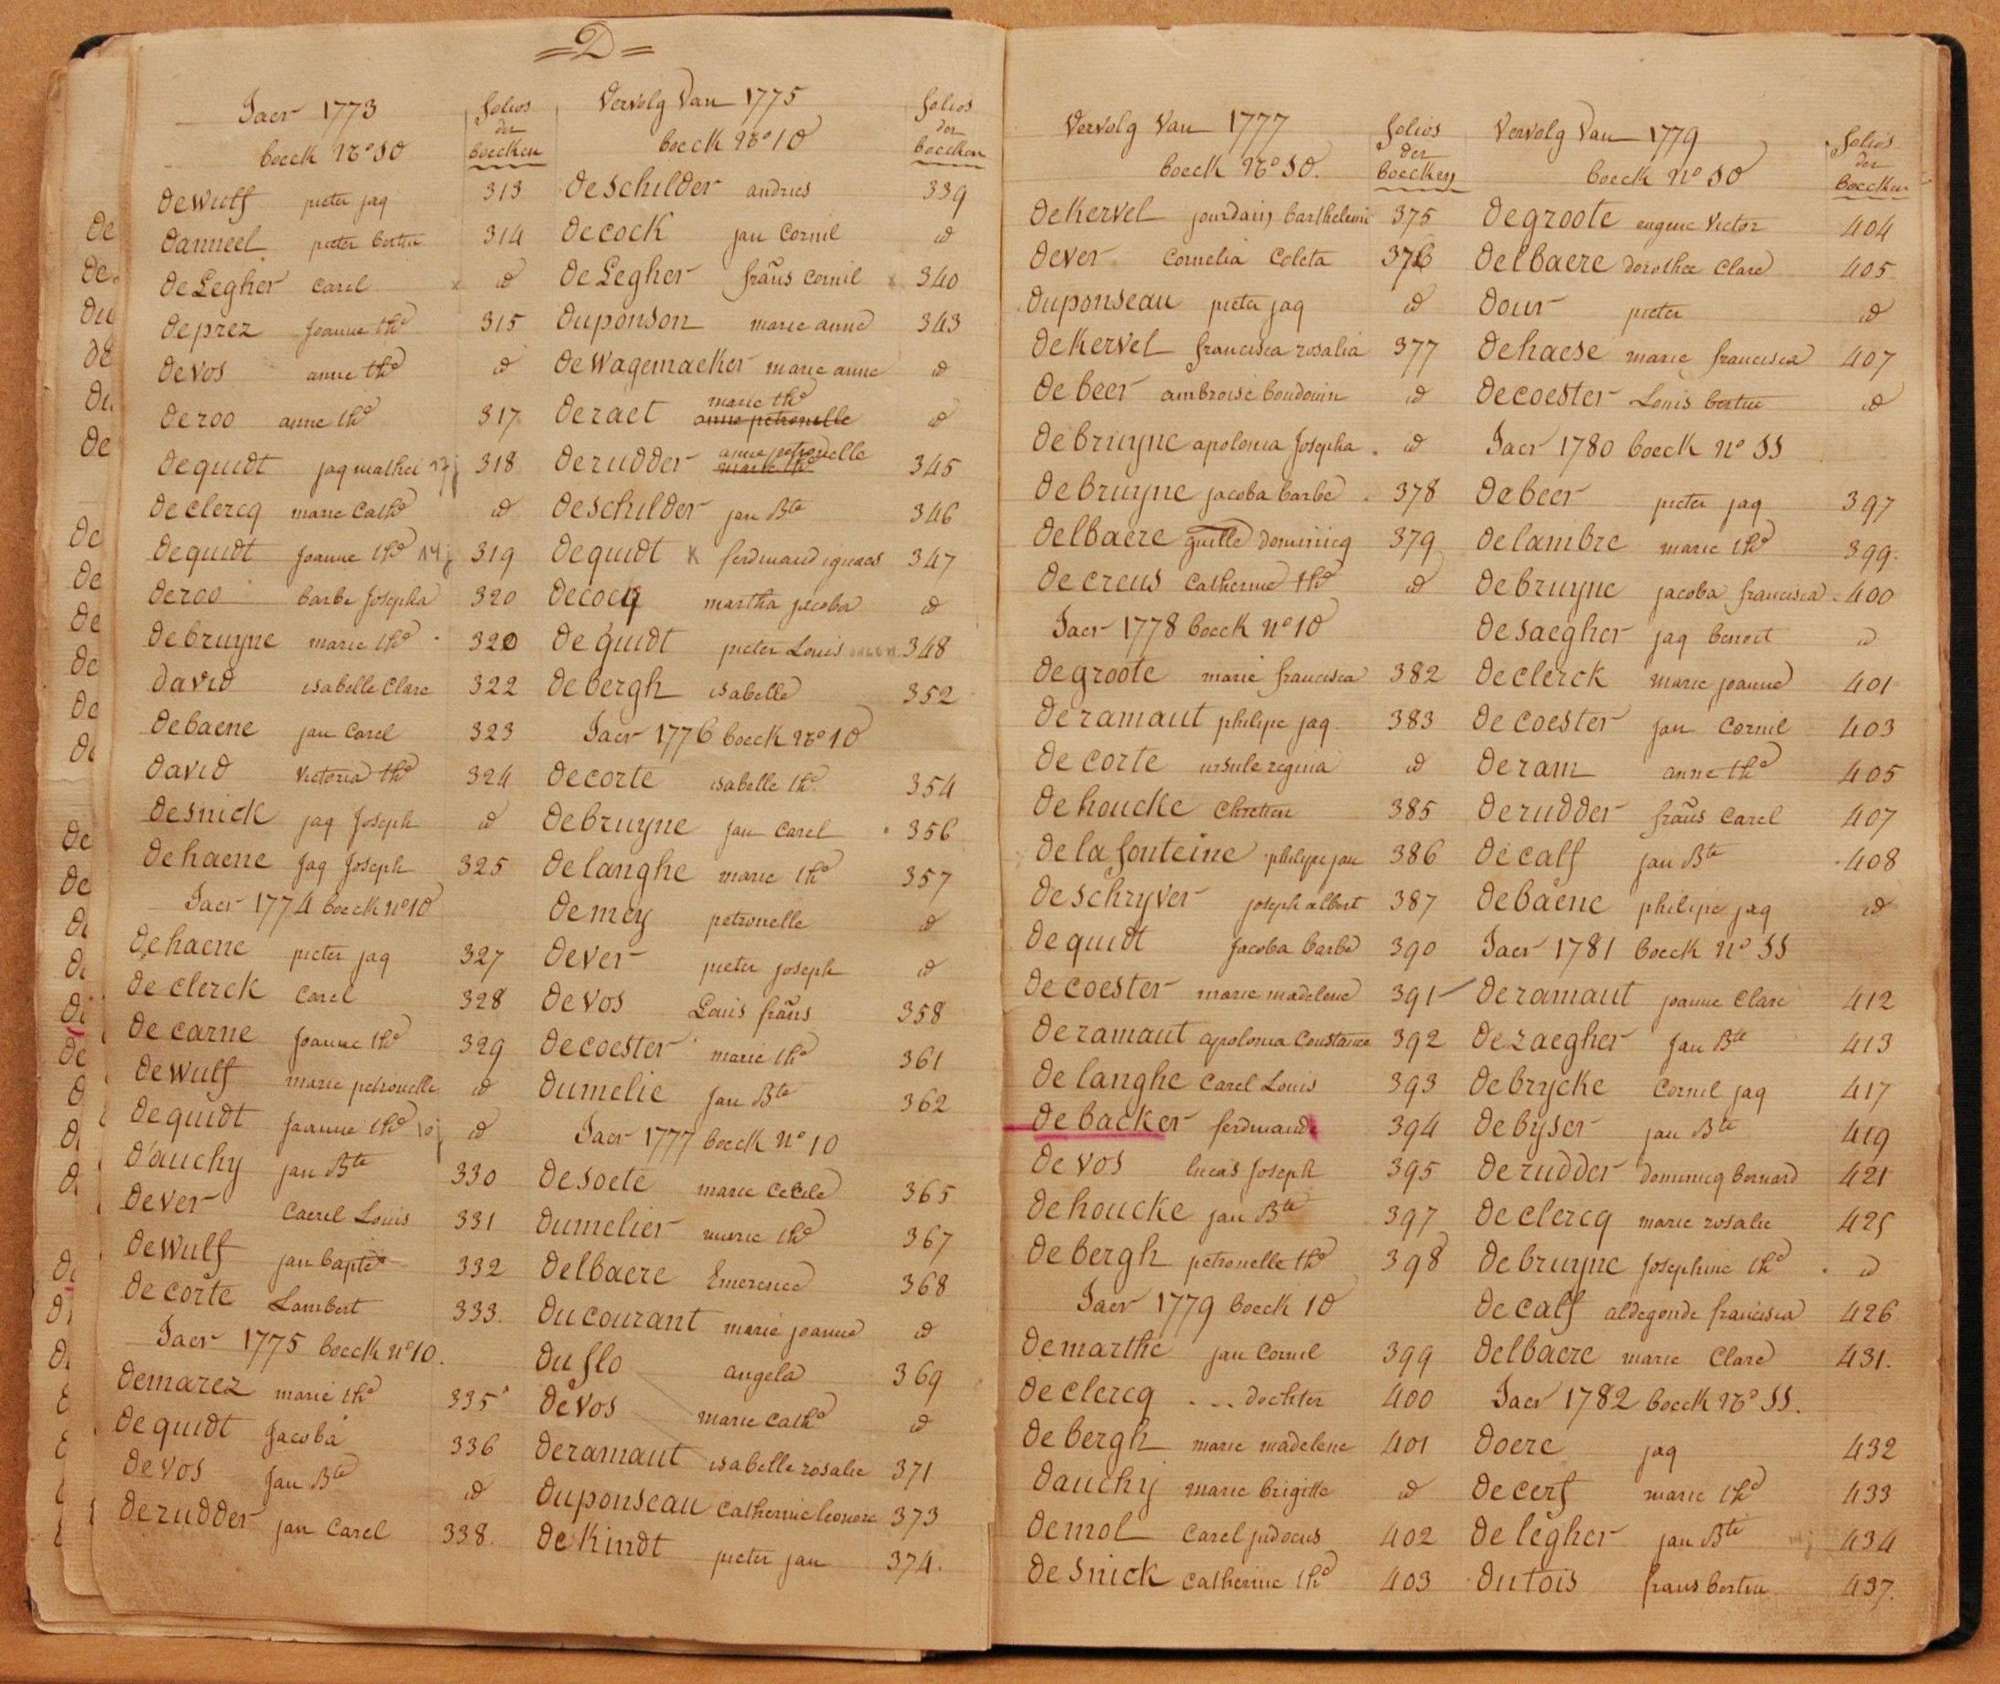 =D=
Jaer 1773
boeck No 10
folios
der
boecken
dewulf pieter jaq 313
danneel pieter bertin 314
deLegher carel id
deprez Joanne the 315
devos anne the id
deroo anne the 317
dequidt jaq mathei 318
declercq marie Cathe id
dequidt Joanne the 14j 319
deroo barbe Josepha 320
debruyne marie the 320
david isabelle Clare 322
debaene jan Carel 323
david victoria the 324
desnick jaq Joseph id
dehaene Jaq Joseph 325
Jaer 1774 boeck no 10
dehaene pieter jaq 327
declerck Carel 328
decarne Joanne the 329
dewulf marie petronelle id
dequidt Joanne the 10j id
d'auchy jan Bte 330
dever Caerel Louis 331
dewulf jan bapte 332
decorte Lambert 333.
Jaer 1775 boeck no 10.
demarez marie the 335
dequidt Jacoba 336
devos Jan Bte id
derudder jan Carel 338.
Vervolg Van 1775
boeck No 10
folios
der
boecken
deschilder andries 339
decock jan Cornil id
deLegher frans cornil 340
duponson marie anne 343
deWagemaeker marie anne id
deraet marie the anne petronelle id
derudder anne petronelle marie the 345
deschilder jan Bte 346
dequidt K ferdinand ignaes 347
decocq martha jacoba id
dequidt pieter Louis 348
debergh isabelle 352
Jaer 1776 boeck No 10
decorte isabelle the 354
debruyne jan Carel 356
delanghe marie the 357
demey petronelle id
dever pieter joseph id
devos Louis frans 358
decoester marie the 361
dumelie Jan Bte 362
Jaer 1777 boeck no 10
desoete marie Cecile 365
dumelier marie the 367
delbaere Emerence 368
ducourant marie joanne id
duflo angela 369
devos marie Cathe id
deramaut isabelle rosalie 371
duponseau Catherine leonore 373
deKindt pieter jan 374.
Vervolg Van 1777
boeck No 10.
folios
der
boecken
deKervel jourdain barthelemie 375
dever Cornelia Coleta 376
duponseau pieter jaq id
deKervel francisca rosalia 377
debeer ambroise boudouin id
debruyne apolonia Josepha id
debruyne jacoba barbe 378
delbaere guille dominicq 379
decreus Catherine the id
Jaer 1778 boeck no 10
degroote marie francisca 382
deramaut philipe jaq 383
decorte ursule regina id
dehoucke Chretien 385
delafonteine philipe jan 386
deschryver joseph albert 387
dequidt Jacoba barbe 390
decoester marie madelene 391
deramaut apolonia Constance 392
delanghe Carel Louis 393
debacker ferdinande 394
devos lucas Joseph 395
dehoucke jan Bte 397
debergh petronelle the 398
Jaer 1779 boeck 10
demarthe jan Cornil 399
declercq ... dochter 400
debergh marie madelene 401
dauchy marie brigitte id
demol Carel judocus 402
desnick Catherine the 403
Vervolg Van 1779
boeck No 10
folios
der
boecken
degroote eugene Victor 404
delbaere dorothee Clare 405
dour pieter id
dehaese marie francisca 407
decoester Louis bertin id
Jaer 1780 boeck No 11
debeer pieter jaq 397
delambre marie the 399.
debruyne jacoba francisca 400
desaegher jaq benoit id
declerck marie joanne 401
decoester jan Cornil 403
deram anne the 405
derudder frans Carel 407
decalf jan Bte 408
debaene philipe jaq id
Jaer 1781 boeck No 11
deramaut joanne Clare 412
dezaegher Jan Bte 413
debrycke Cornil jaq 417
debyser jan Bte 419
derudder dominicq bernard 421
declercq marie rosalie 425
debruyne Josephine the id
decalf aldegonde francisca 426
delbaere marie Clare 431.
Jaer 1782 boeck No 11.
doere jaq 432
decerf marie the 433
delegher jan Bte 434
dutois frans bertin 437.